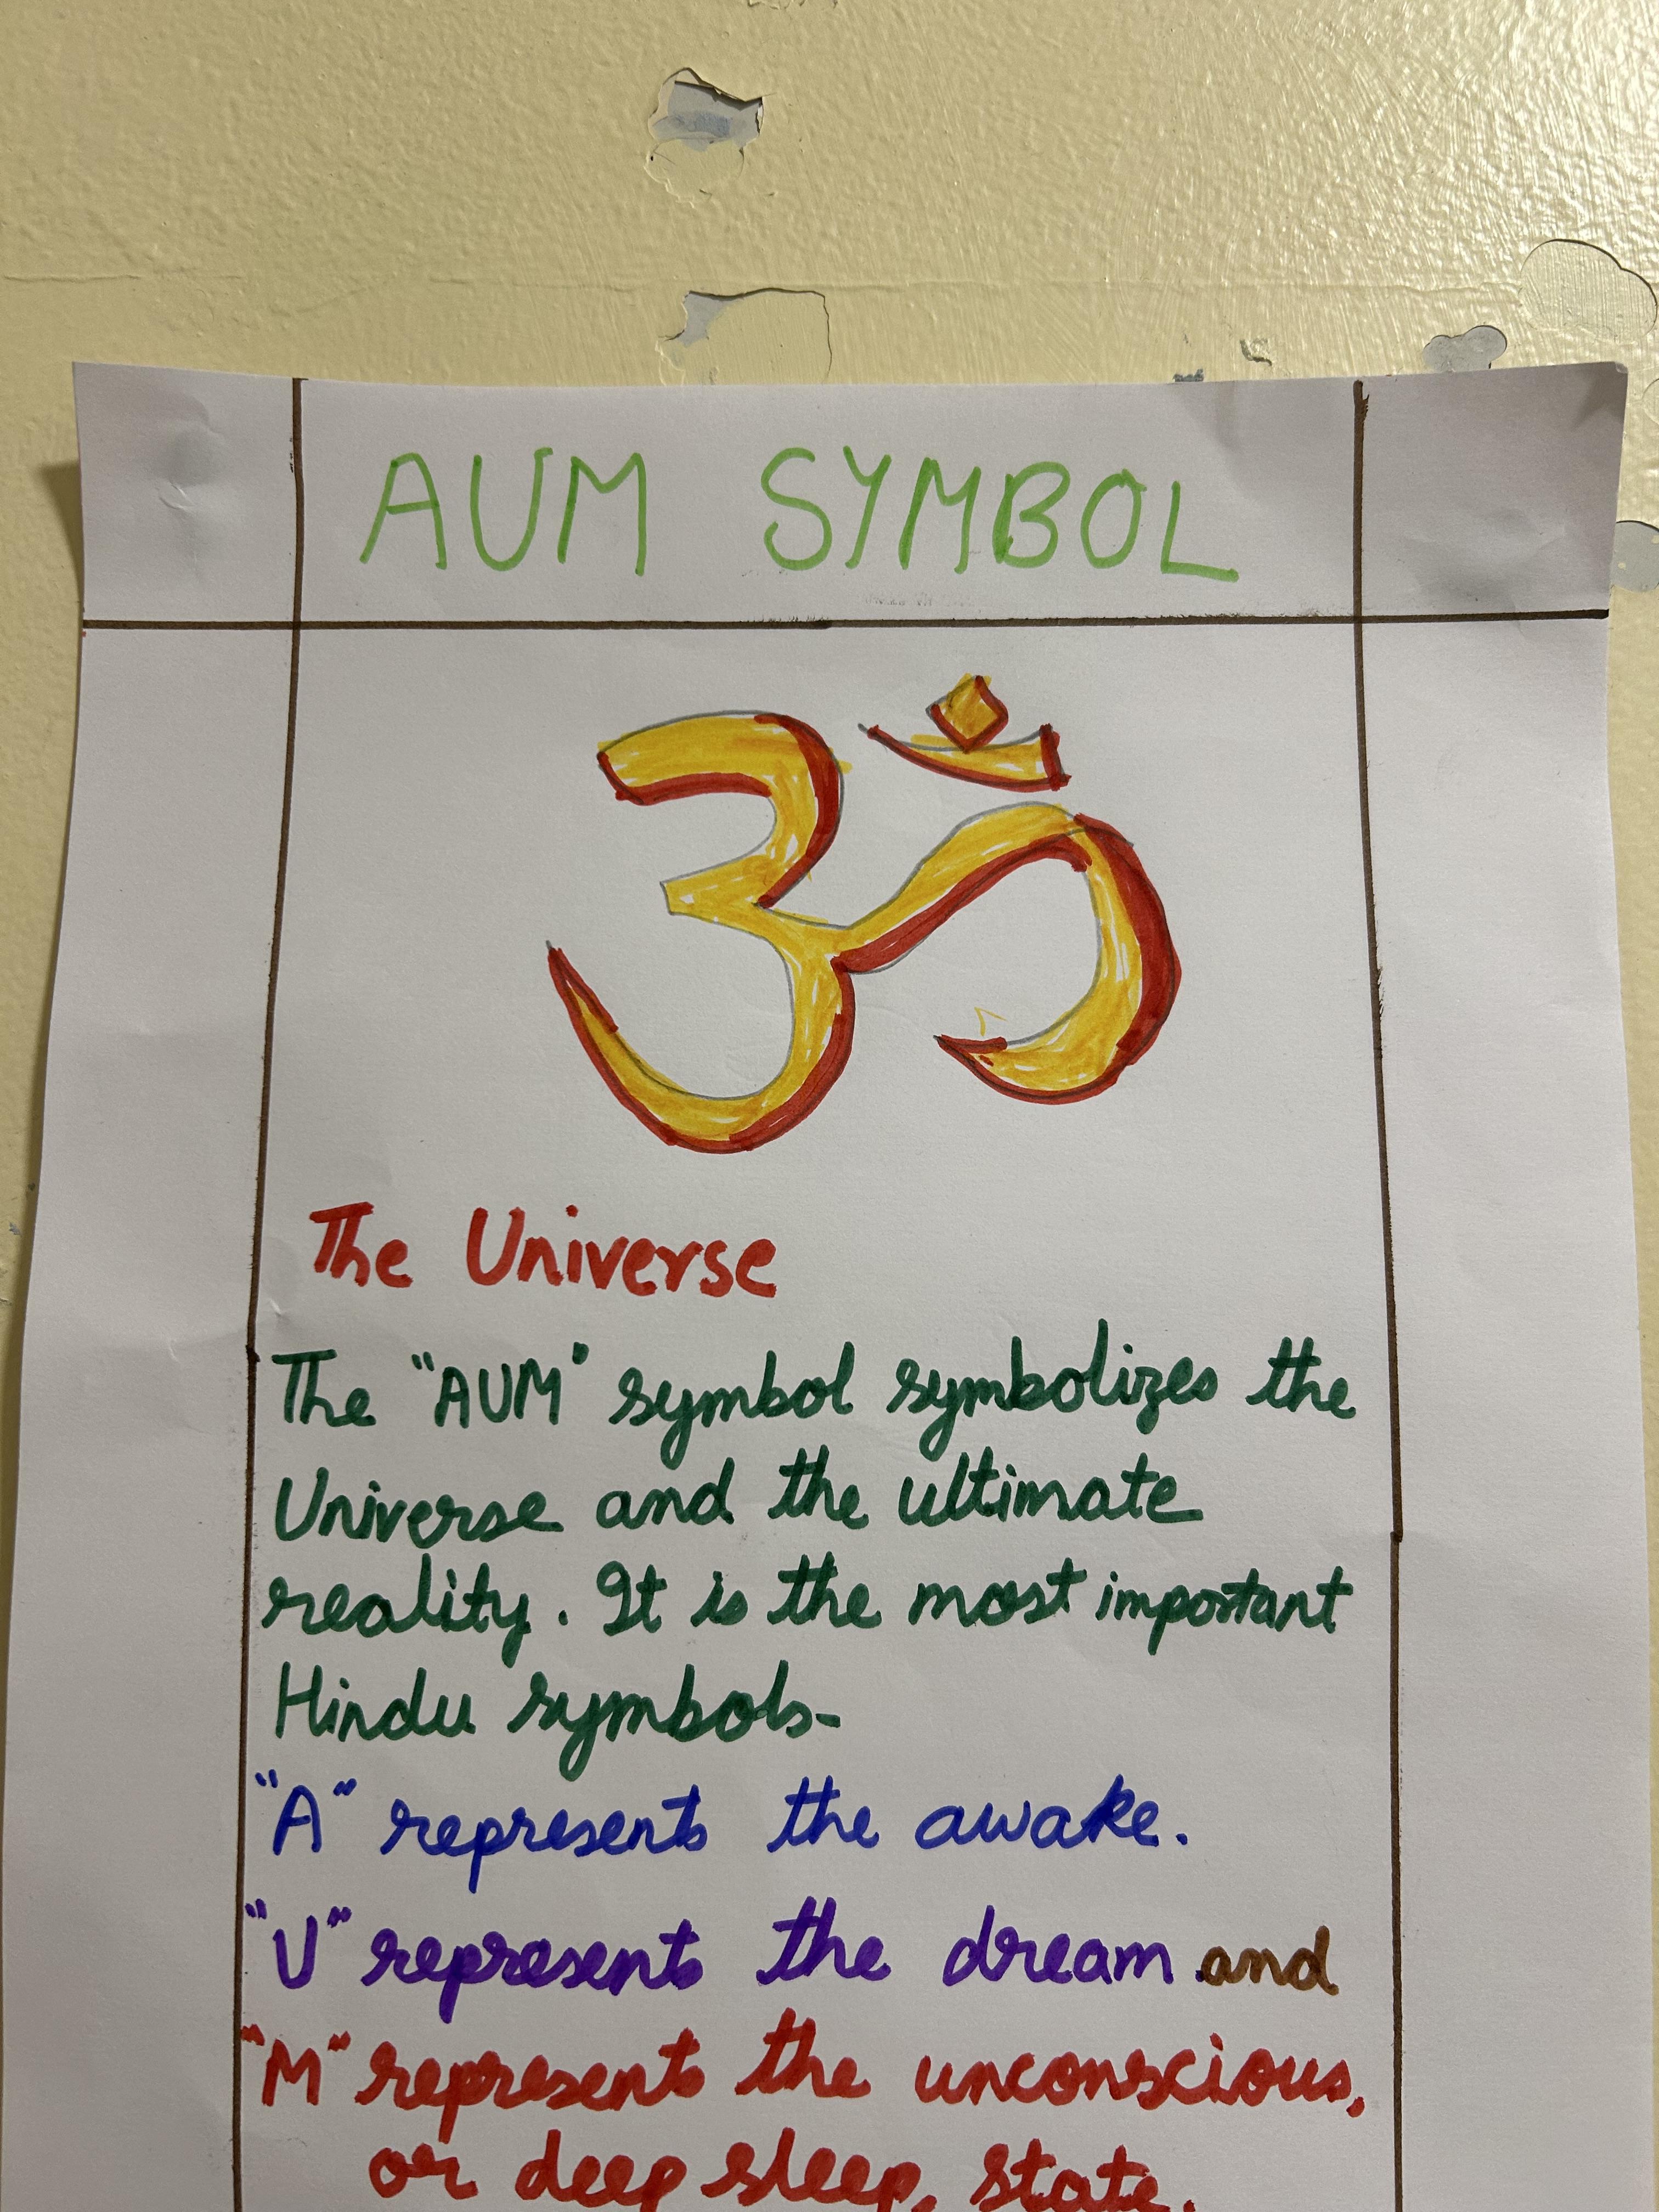 AUM SYMBOL
ॐ
The Universe
The "AUM" symbol symbolizes the
Universe and the ultimate
reality. It is the most important
Hindu symbols.
"A" represents the awake.
"U" represents the dream and
"M" represents the unconscious,
or deep sleep, state.